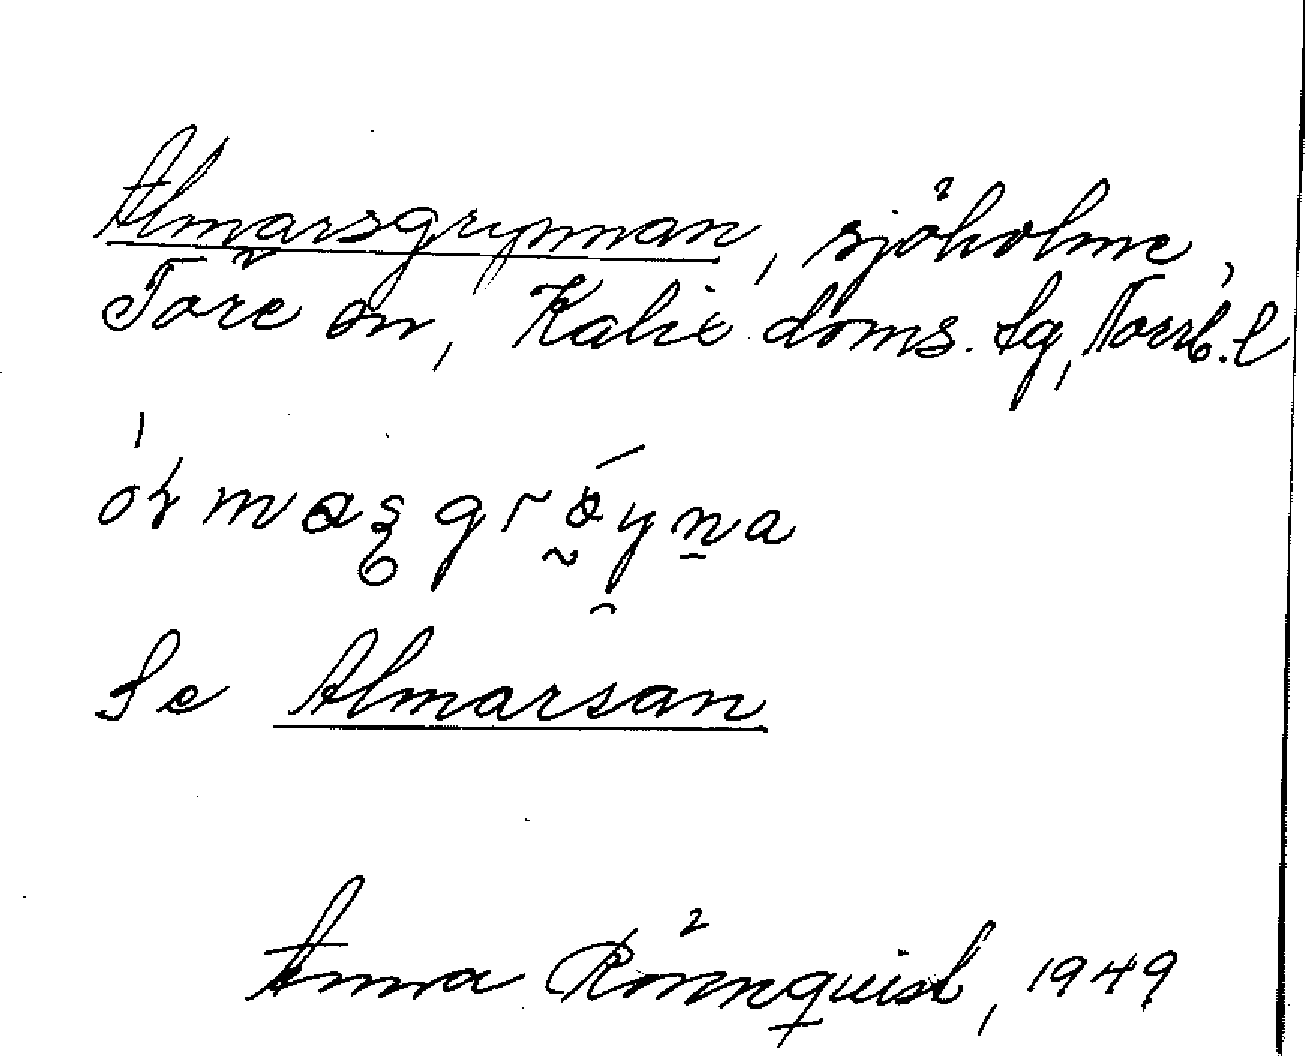 Almarsgrynnan, sjöholme,
Töre sn, Kalix doms. lg, Norrb. l
Se Almarsan
Anna Rönnquist, 1949